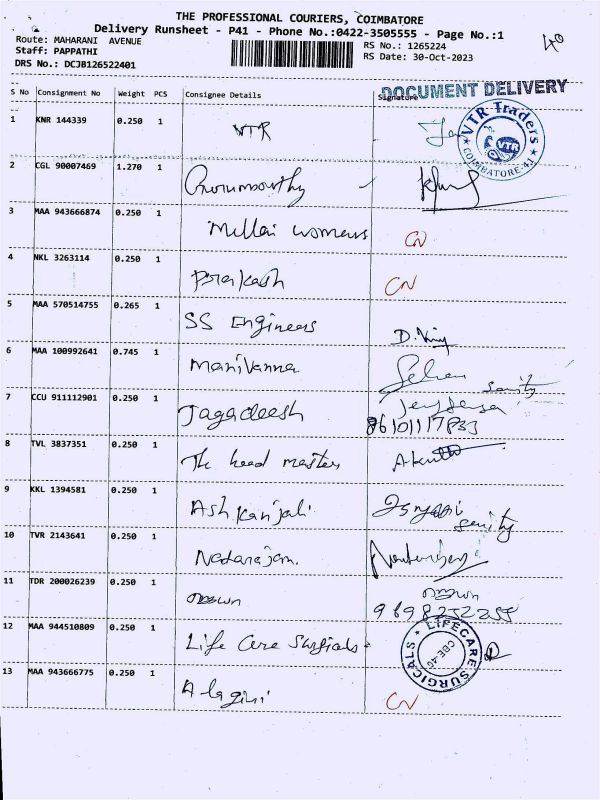 THE PROFESSIONAL COURIERS, COIMBATORE
Delivery Runsheet - P41 - Phone No.:0422-3505555 - Page No.:1
40
Route: MAHARANI AVENUE
RS No.: 1265224
Staff: PAPPATHI
RS Date: 30-Oct-2023
DRS No.: DCJB126522401
DOCUMENT DELIVERY
S No Consignment No Weight PCS Consignee Details Signature
1 KNR 144339 0.250 1 VTR
VTR Traders
VTR
COIMBATORE-41
2 CGL 90007469 1.270 1
3 MAA 943666874 0.250 1 Mullai womens CN
4 NKL 3263114 0.250 1 Prakash CN
5 MAA 570514755 0.265 1 SS Engineers
6 MAA 100992641 0.745 1 Manivanna
7 CCU 911112901 0.250 1 Jagadeesh
8610117833
8 TVL 3837351 0.250 1 The head master
9 KKL 1394581 0.250 1 Ashkanjali
10 TVR 2143641 0.250 1 Nadarajan.
11 TDR 200026239 0.250 1
12 MAA 944510809 0.250 1 Life Care Surgicals
LIFECARE SURGICALS
CBE-46
13 MAA 943666775 0.250 1 Alagini CN